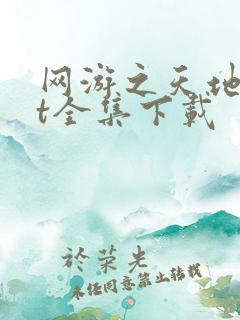 网游之天地
t全集下载
於荣光
未经同意禁止转载